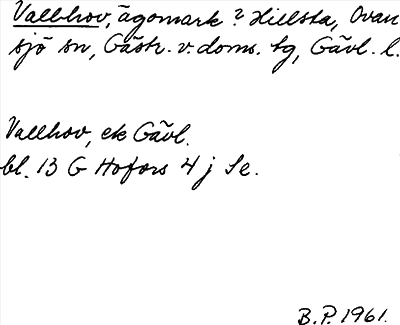 Vallhov, ägomark ? Hillsta, Ovan
sjö sn, Gästr. v. doms. tg, Gävl. l.
Vallhov, ek Gävl.
bl. 13 G Hofors 4 j Se.
B.P. 1961.